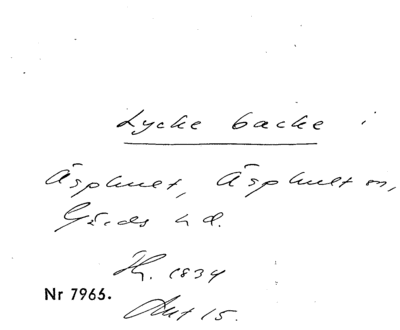 Lycke backe i
Äsphult, Äsphult sn,
Gärds hd.
Hg. 1834
Nr 7965.
Akt 15.